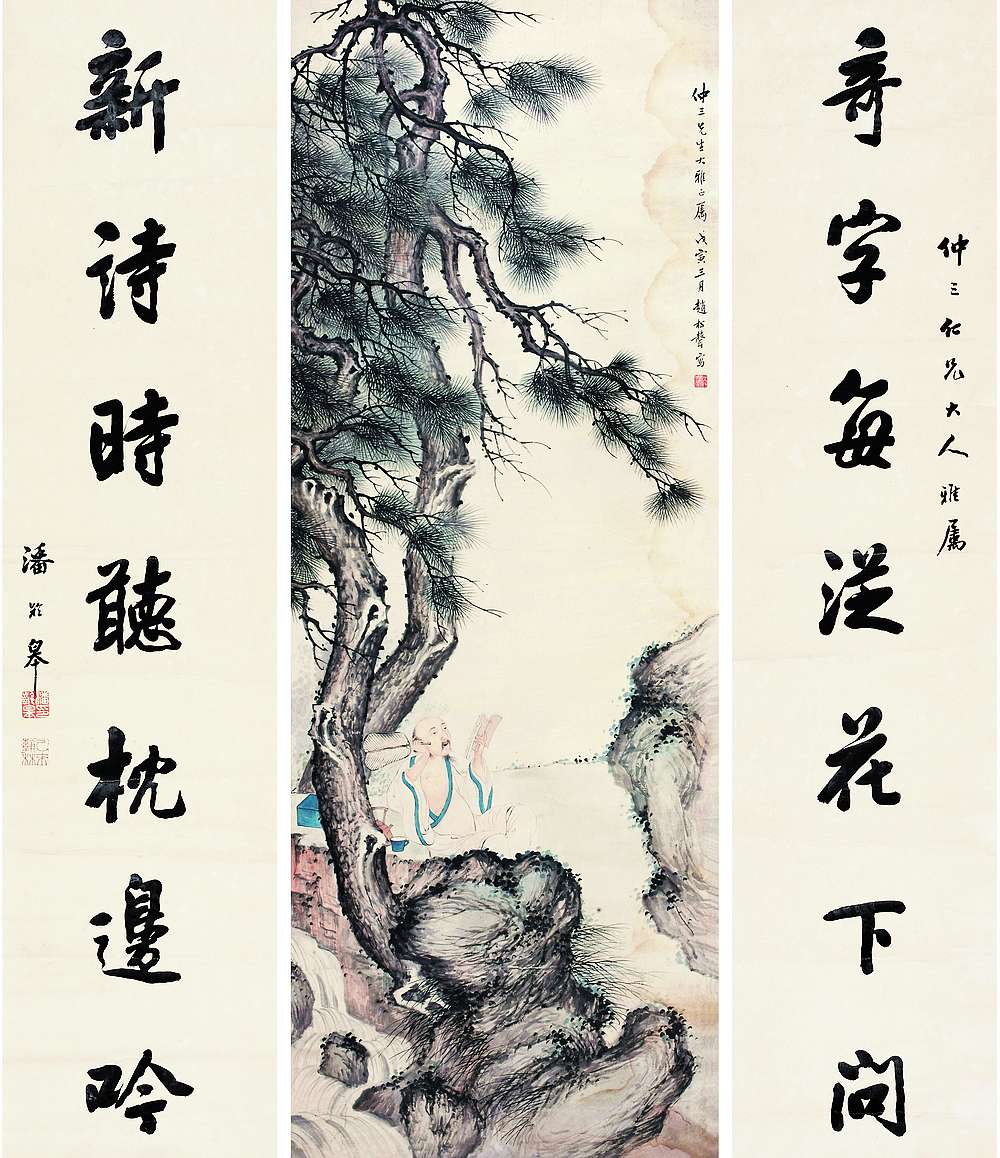 仲三仁兄大人雅属
奇字每從花下問
仲三先生大雅正属 戊寅三月 趙松聲寫
新詩時聽枕邊吟
潘龄皋